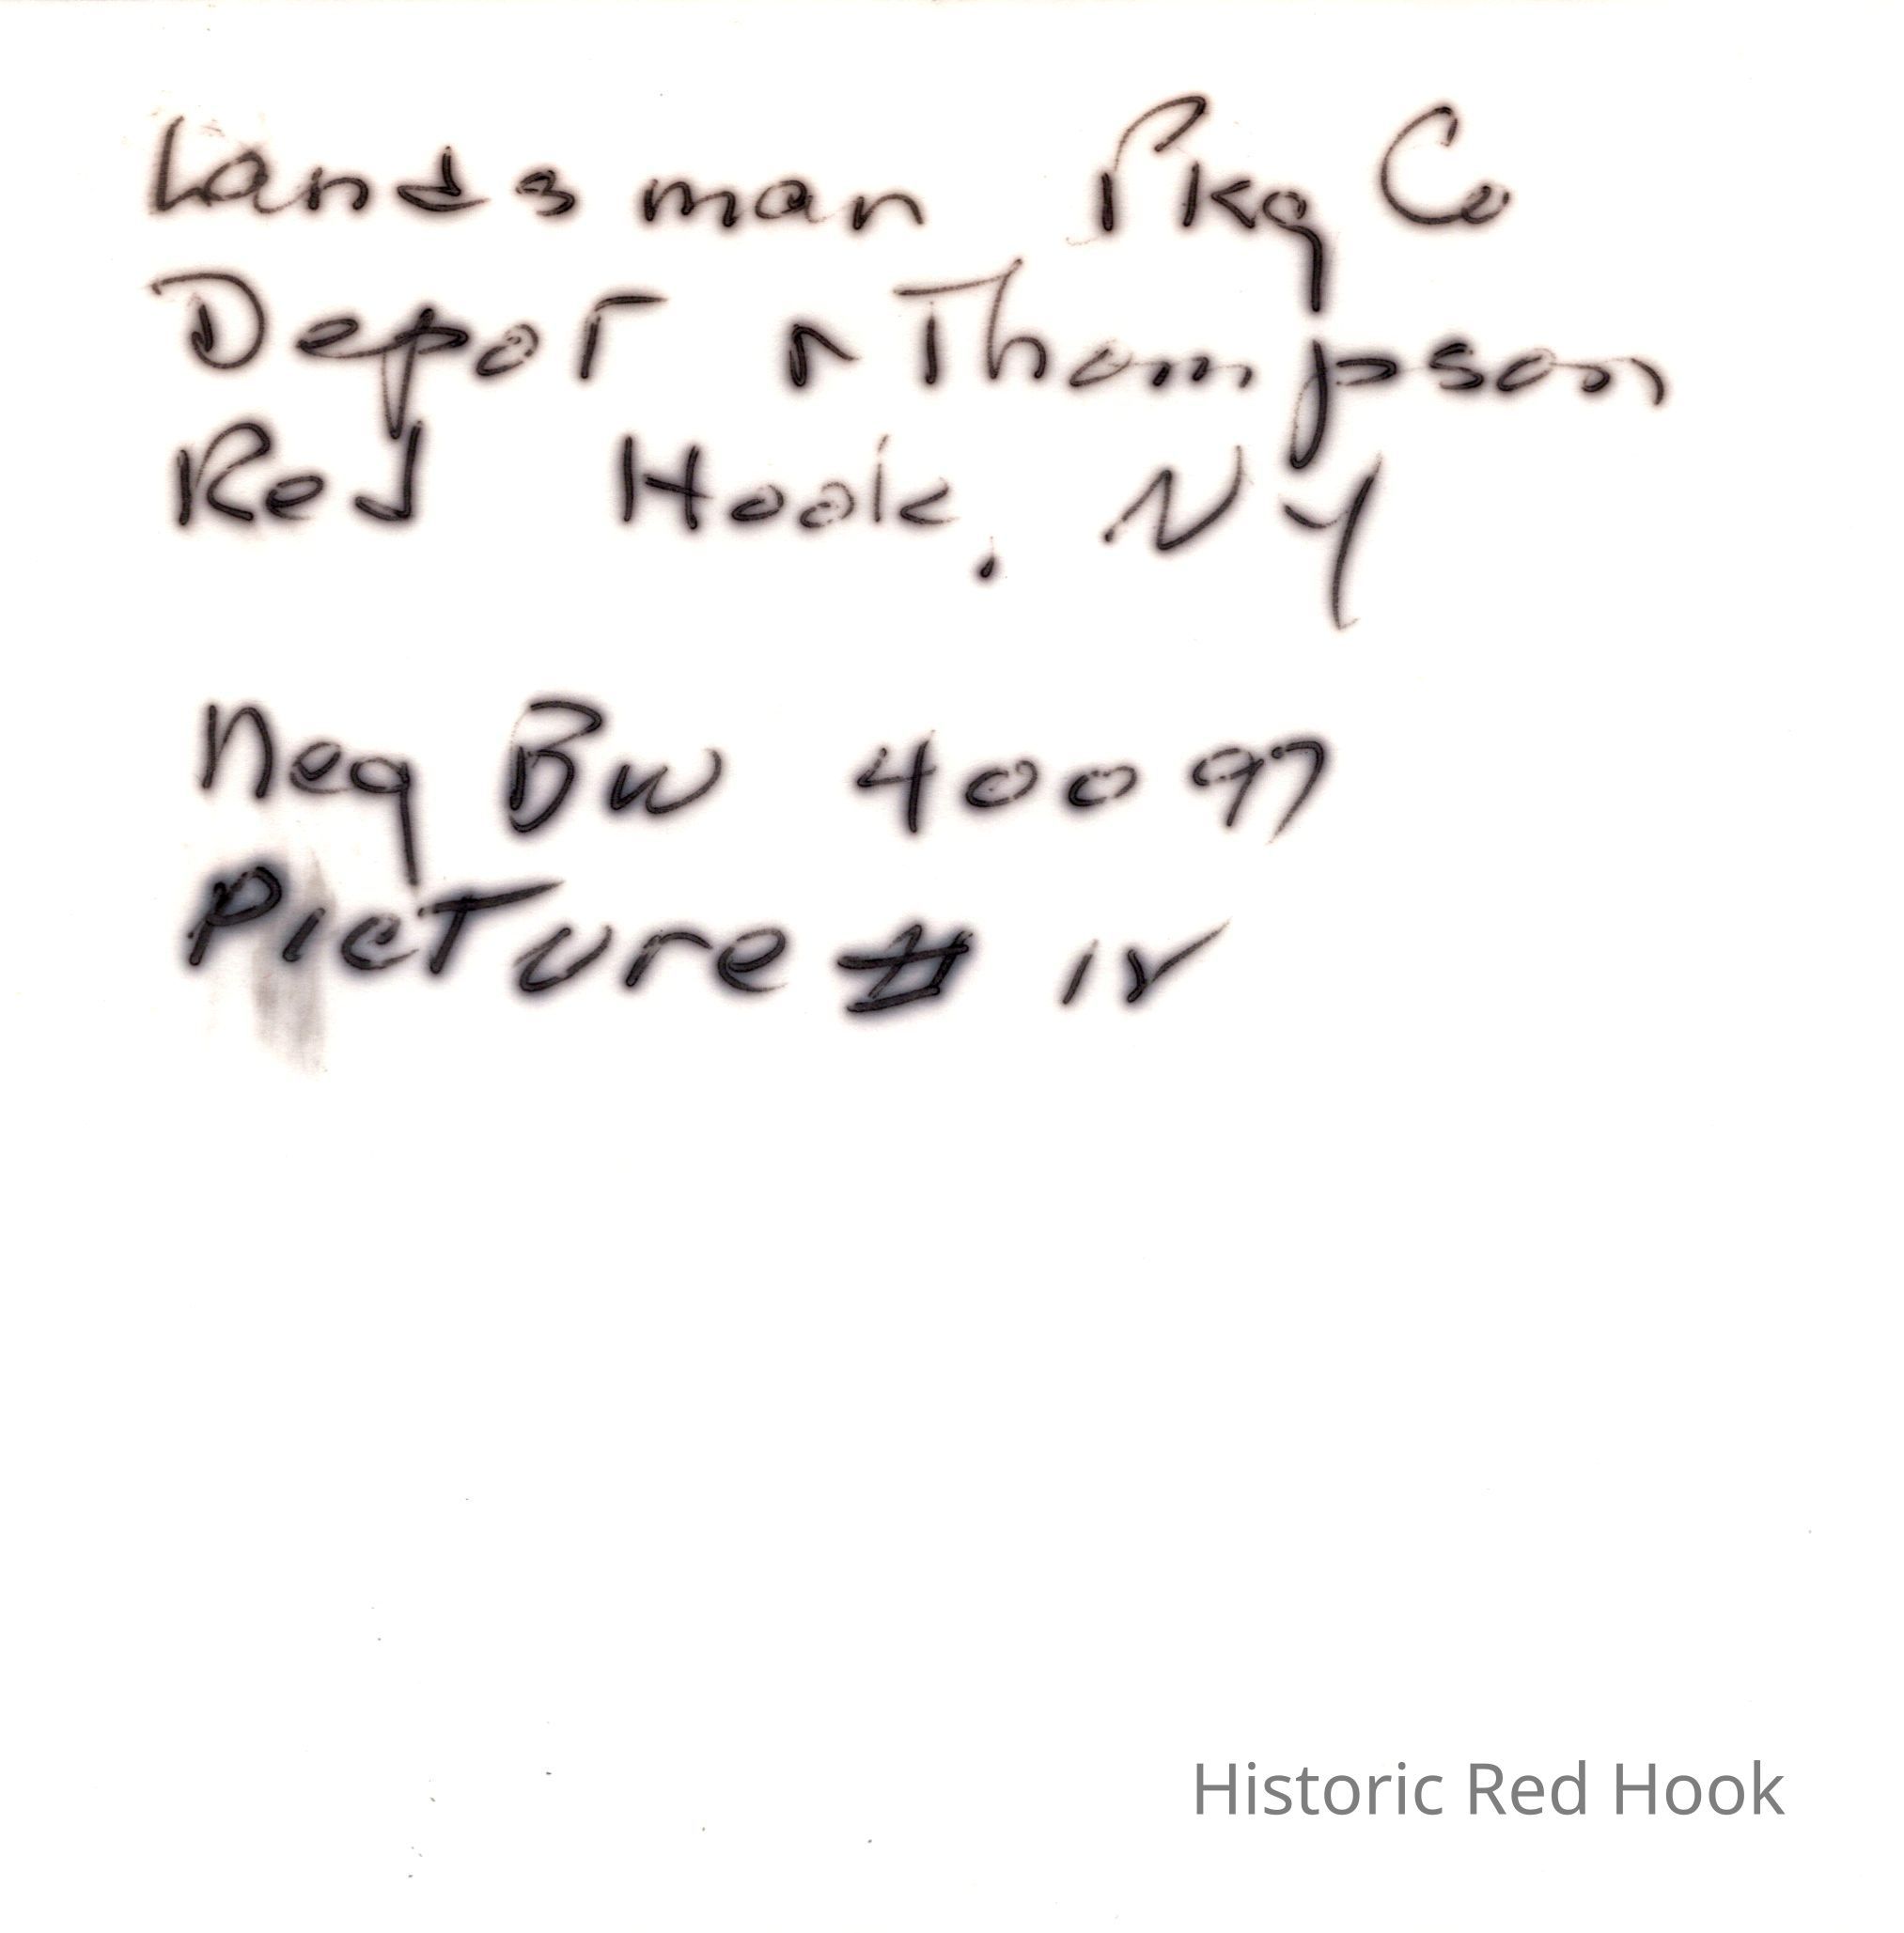 Landsman Pkg Co
Depot & Thompson
Red Hook, NY
Neg BW 40097
Picture #
Historic Red Hook